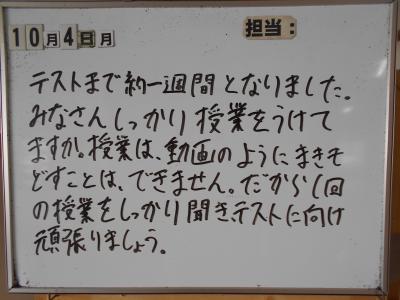 10月4日月
担当:
テストまで約一週間となりました。
みなさんしっかり授業をうけて
ますか。授業は、動画のようにまきも
どすことは、できません。だから1回
の授業をしっかり聞き、テストに向け
頑張りましょう。